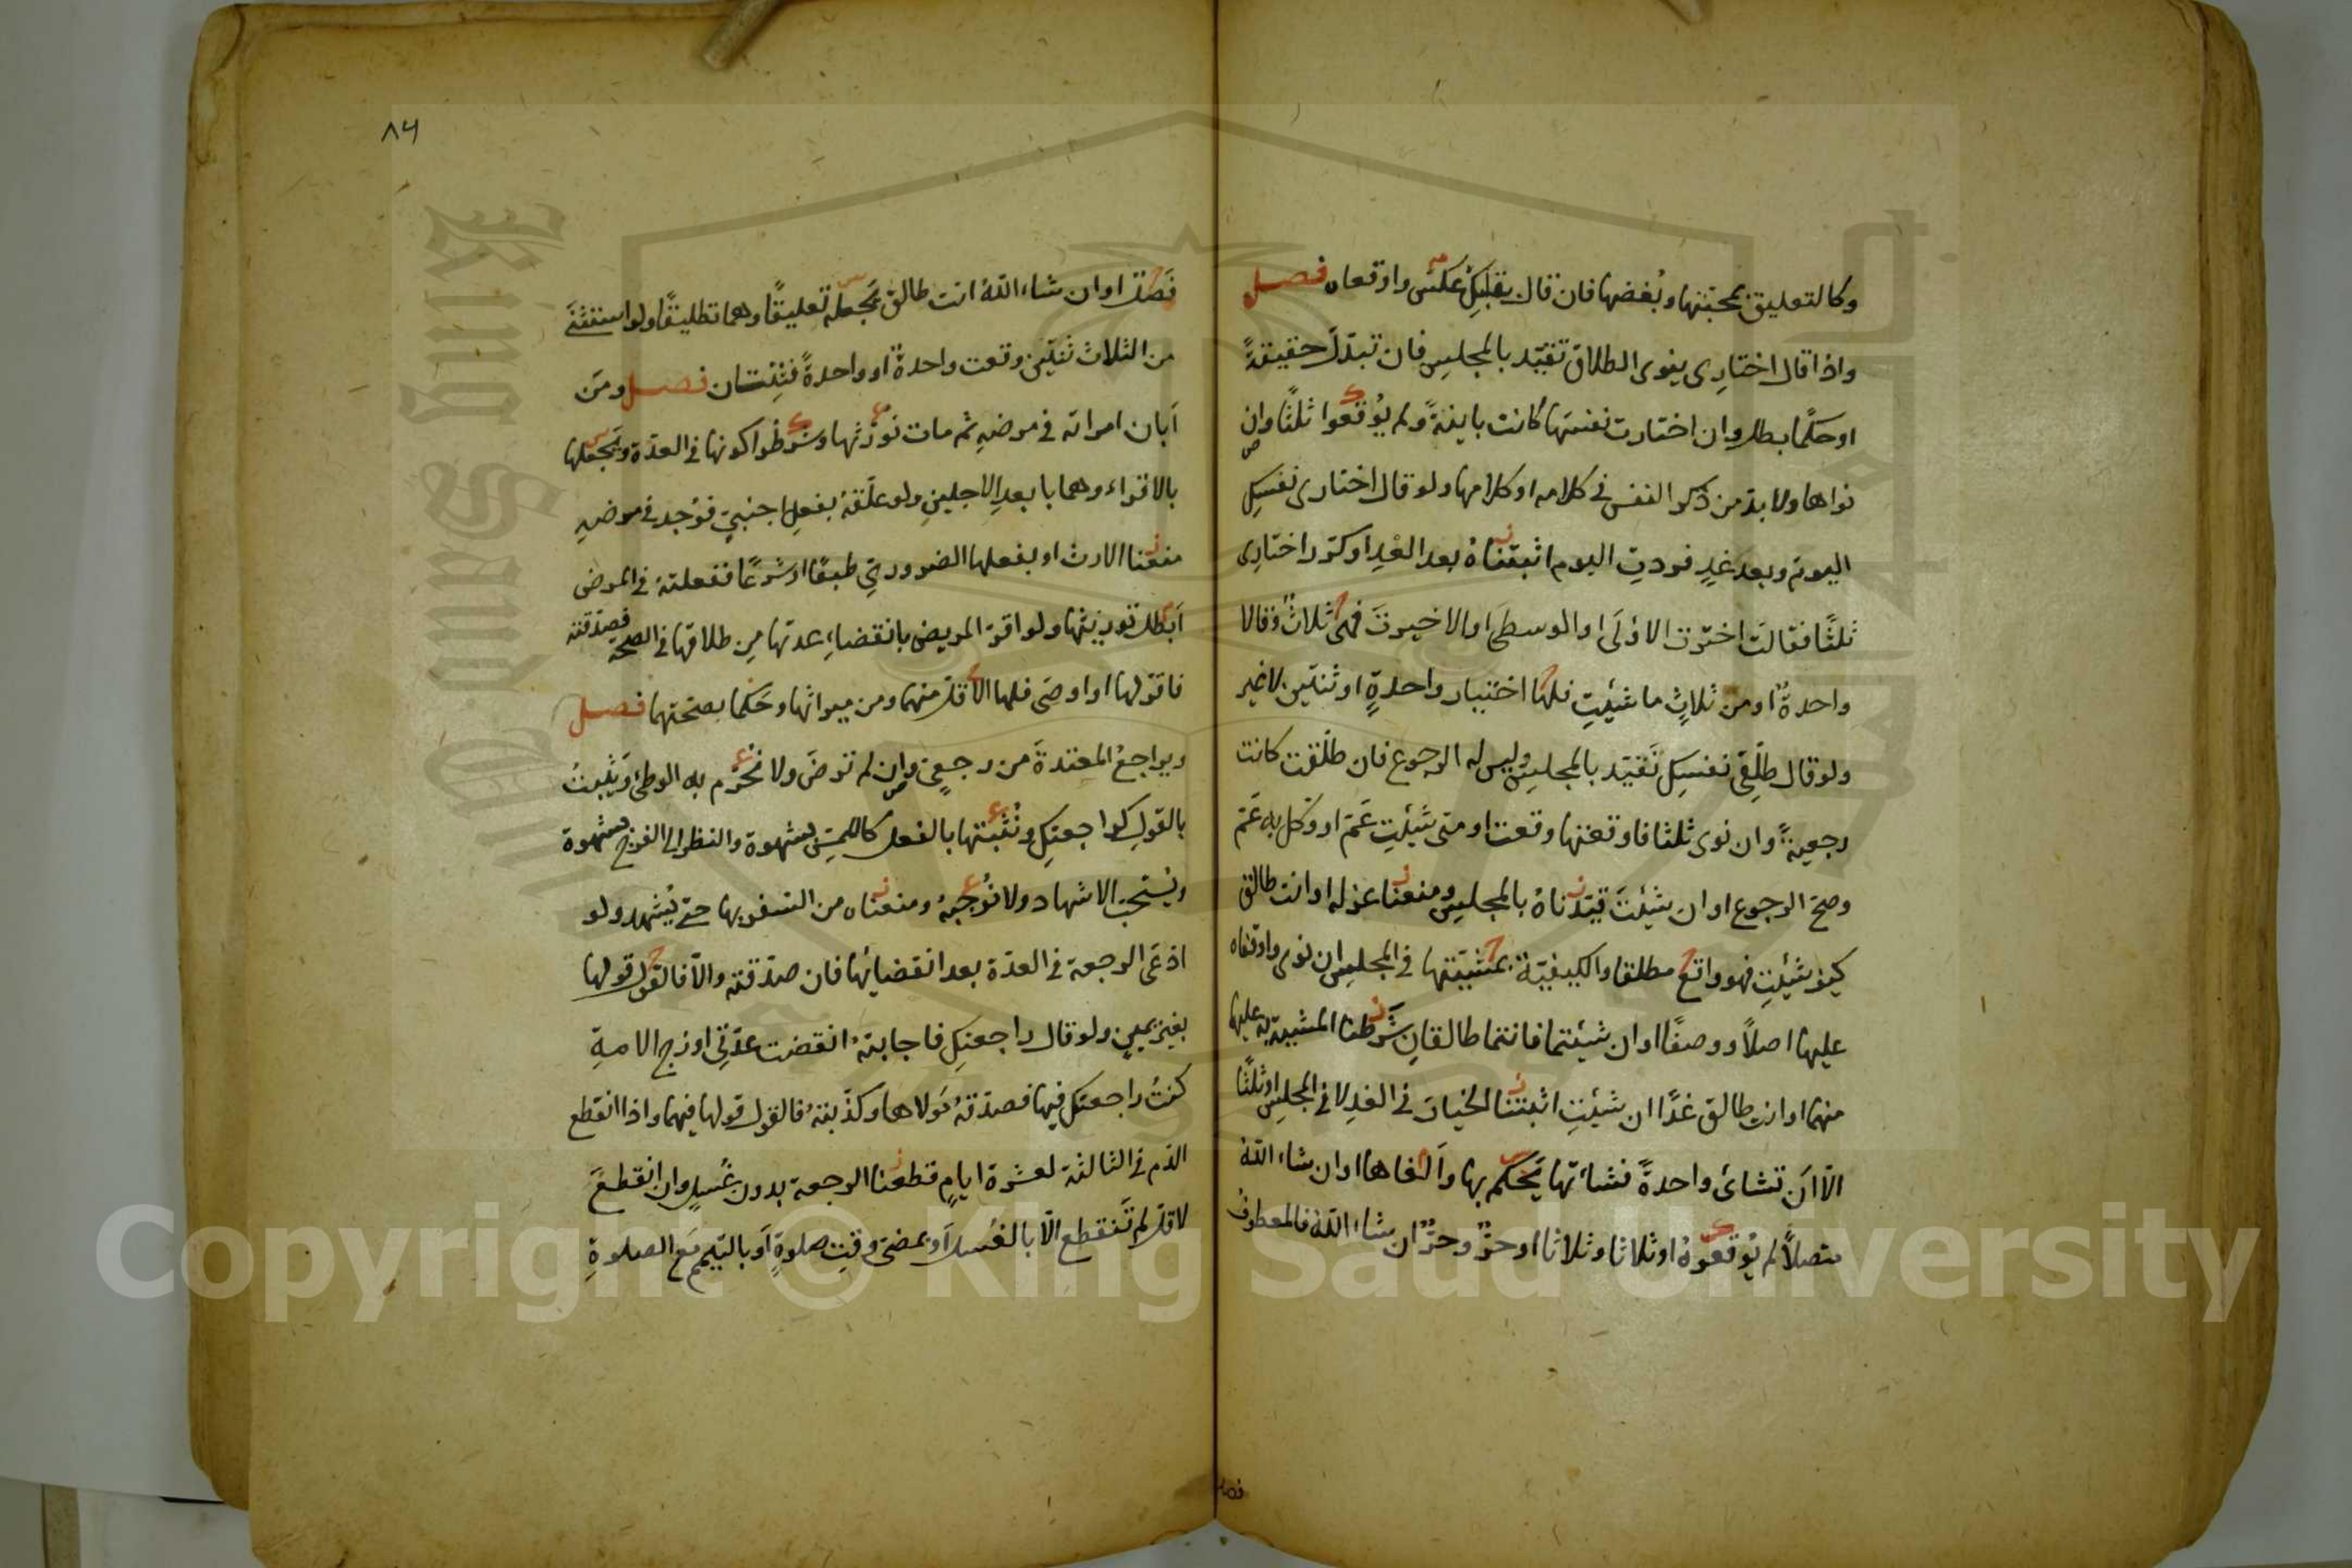 وكالتعليق بمحبتها وبُغضها فان قال بقلبكِ عكس واوقعاه فصل
واذا قال اختارِى ينوى الطلاق تقيّد بالمجلسِ فان تبدّل حقيقةً
او حكمًا بطل وان اختارت نفسَها كانت باينةً ولم يُوقعوا ثلثًا وان
نواها ولا بد من ذكر النفس فى كلامه او كلامها ولو قال اختارى نفسكِ
اليومَ وبعد غدٍ فردتِ اليوم اثبتناهُ بعد الغدِ او كرّر اختارِى
ثلثًا فقالت اخترت الاولَى او الوسطى او الاخيرة فهى ثلاثٌ وقالا
واحدةٌ او من ثلاثٍ ما شيئتِ فلها اختيار واحدةٍ او ثنتين لا غير
ولو قال طلّقِى نفسكِ تقيّد بالمجلسِ وليس له الرجوع فان طلّقت كانت
رجعيةً وان نوى ثلثا فاوقعتها وقعت او متى شيئتِ عَمّ او وكّل به عَمّ
وصح الرجوع او ان شئتَ قيّدناهُ بالمجلسِ ومنعنا عزله او انت طالق
كيف شيئتِ فهو واقع مطلقا والكيفيّة بمشيّتها فى المجلس ان نوى واوقفاه
عليها اصلاً ووصفًا او ان شيئتما فانتما طالقانِ شرطنا المشيية عليها
منهما او انت طالق غدًا ان شيئتِ اثبتنا الخيارَ فى الغدِ لا فى المجلسِ او ثلثًا
الّا اَن تشاءى واحدةً فشاءتها يَحكم بها واَلغاها او ان شاء اللّهُ
متصلاً لم يُوقعوهُ او ثلاثا وثلاثا او حرٌّ وحرٌّ ان شاء اللّه فالمعطوفُ
فصل
٨٤
فَصل او ان شاء اللّهُ انت طالق يَجعله تعليقًا وهما تطليقًا ولو استثنَى
من الثلاث ثنتين وقعت واحدةٌ او واحدةً فثِنتان فصل ومَن
اَبان امراته فى مرضهِ ثم مات نورّثها وشرطوا كونها فى العدّة ويَجعلها
بالاقراء وهما بابعدِ الاجلينِ ولو علّقهُ بفعلِ اجنبيّ فوُجد فى مرضهِ
منعنا الارث او بفعلها الضروريّ طبعًا او شرعًا ففعلتهُ فى المرض
اَبطل توريثها ولو اقرّ المريض بانقضاءِ عدتها مِن طلاقها فى الصحة فصدّقته
فاقرّ لها او اوصَى فلها الاقل منهما ومن ميراثها وحَكما بصحتهما فصل
ويراجعُ المعتدةَ من رجعىٍ وان لم ترضَ ولا نُحرّم به الوطئ ويَثبتُ
بالقولِ كراجعتكِ ونُثبتها بالفعل كاللمسِ بشهوة والنظر الى الفرج بشهوة
ويُستحب الاشهاد ولا نُوجبهُ ومنعناه من السفر بها حتى يُشهد ولو
ادّعَى الرجعة فى العدّة بعد انقضائها فان صدّقته والّا فالقول قولها
بغير يمينٍ ولو قال راجعتكِ فاجابتهُ انقضت عدّتِى او زوج الامةِ
كنتُ راجعتكِ فيها فصدّقهُ مَولاها وكذّبتهُ فالقول قولها فيهما واذا انقطع
الدّم فى الثالثة لعشرة ايامٍ قطعنا الرجعة بدون غُسلٍ وان انقطعَ
لاقل لم تَنقطع الّا بالغُسل اَو بمضىّ وقتِ صلوةٍ اَو بالتيمّم مَع الصلوةِ
King Saud University
Copyright © King Saud University